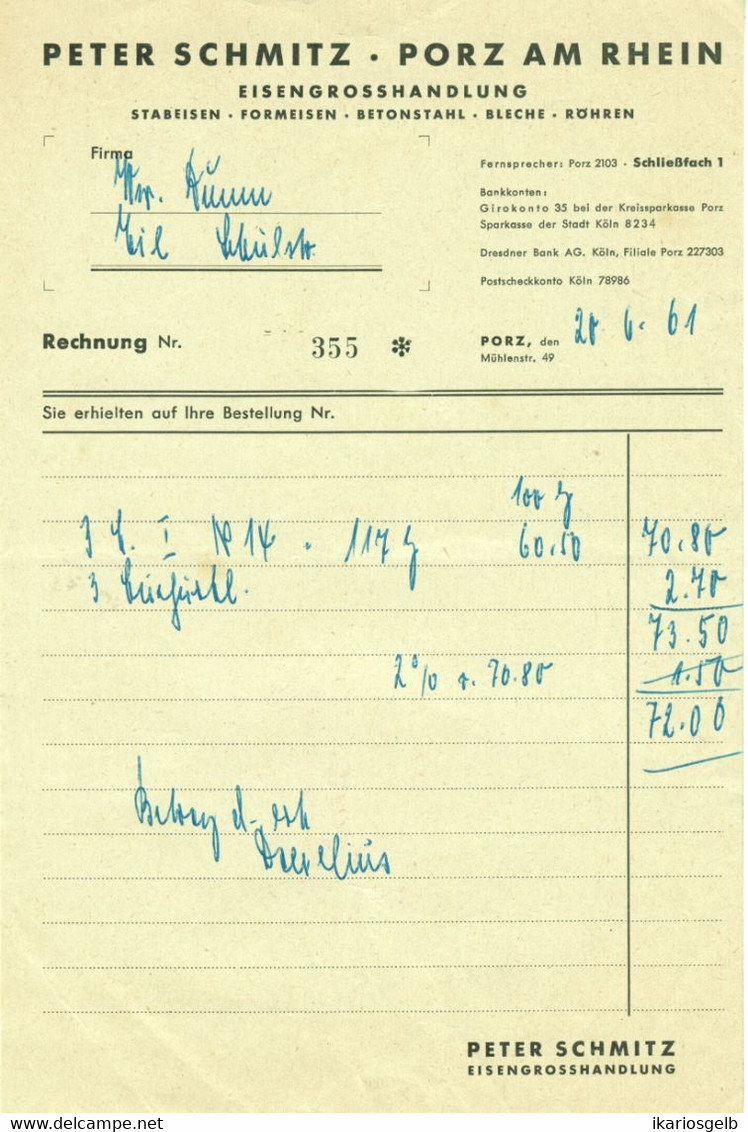 PETER SCHMITZ · PORZ AM RHEIN
EISENGROSSHANDLUNG
STABEISEN · FORMEISEN · BETONSTAHL · BLECHE · RÖHREN
Firma
Fernsprecher: Porz 2103 · Schließfach 1
Bankkonten:
Girokonto 35 bei der Kreissparkasse Porz
Sparkasse der Stadt Köln 8234
Dresdner Bank AG. Köln, Filiale Porz 227303
Postscheckkonto Köln 78986
Eil Schulstr.
Rechnung Nr. 355 ✻
PORZ, den 6. 61
Mühlenstr. 49
Sie erhielten auf Ihre Bestellung Nr.
100
3 I N 14 117 60.50 70.80
3 2.70
73.50
2% v. 70.80 1.50
72.00
Betrag
PETER SCHMITZ
EISENGROSSHANDLUNG
ikariosgelb